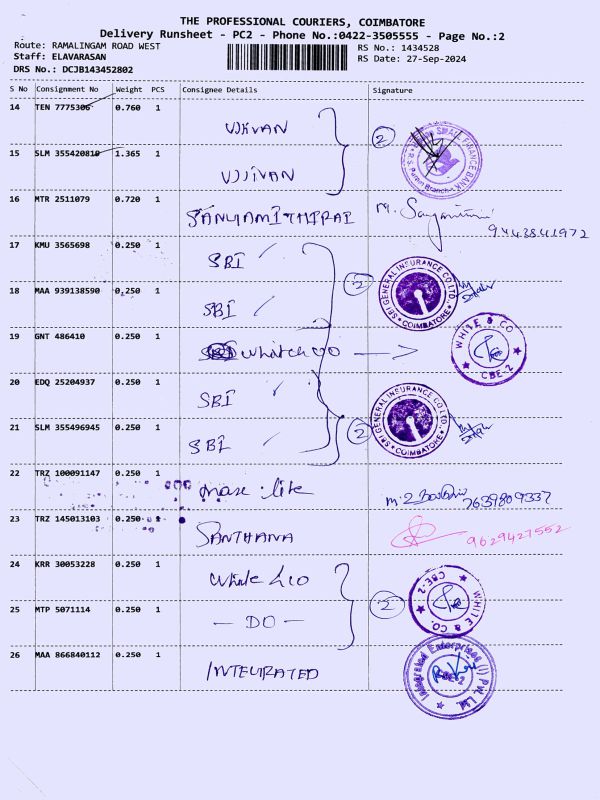 THE PROFESSIONAL COURIERS, COIMBATORE
Delivery Runsheet - PC2 - Phone No.:0422-3505555 - Page No.:2
Route: RAMALINGAM ROAD WEST
RS No.: 1434528
Staff: ELAVARASAN
RS Date: 27-Sep-2024
DRS No.: DCJB143452802
S No Consignment No Weight PCS Consignee Details Signature
14 TEN 7775306 0.760 1 UJJIVAN
2
SMALL FINANCE BANK
15 SLM 355420819 1.365 1 UJJIVAN
16 MTR 2511079 0.720 1 SANYAMITHIRAI
9443841972
17 KMU 3565698 0.250 1 SBI
2 SBI GENERAL INSURANCE CO.LTD. COIMBATORE
18 MAA 939138590 0.250 1 SBI
19 GNT 486410 0.250 1 White & co
WHITE & CO CBE-2
20 EDQ 25204937 0.250 1 SBI
2 SBI GENERAL INSURANCE CO.LTD. COIMBATORE
21 SLM 355496945 0.250 1 SBI
22 TRZ 100091147 0.250 1 maxe lite
7639809337
23 TRZ 145013103 0.250 1 SANTHANA 9629427552
24 KRR 30053228 0.250 1 White & co
2 WHITE & CO. CBE-2
25 MTP 5071114 0.250 1 — DO —
26 MAA 866840112 0.250 1 INTEGRATED
Integrated Enterprises (I) Pvt. Ltd.